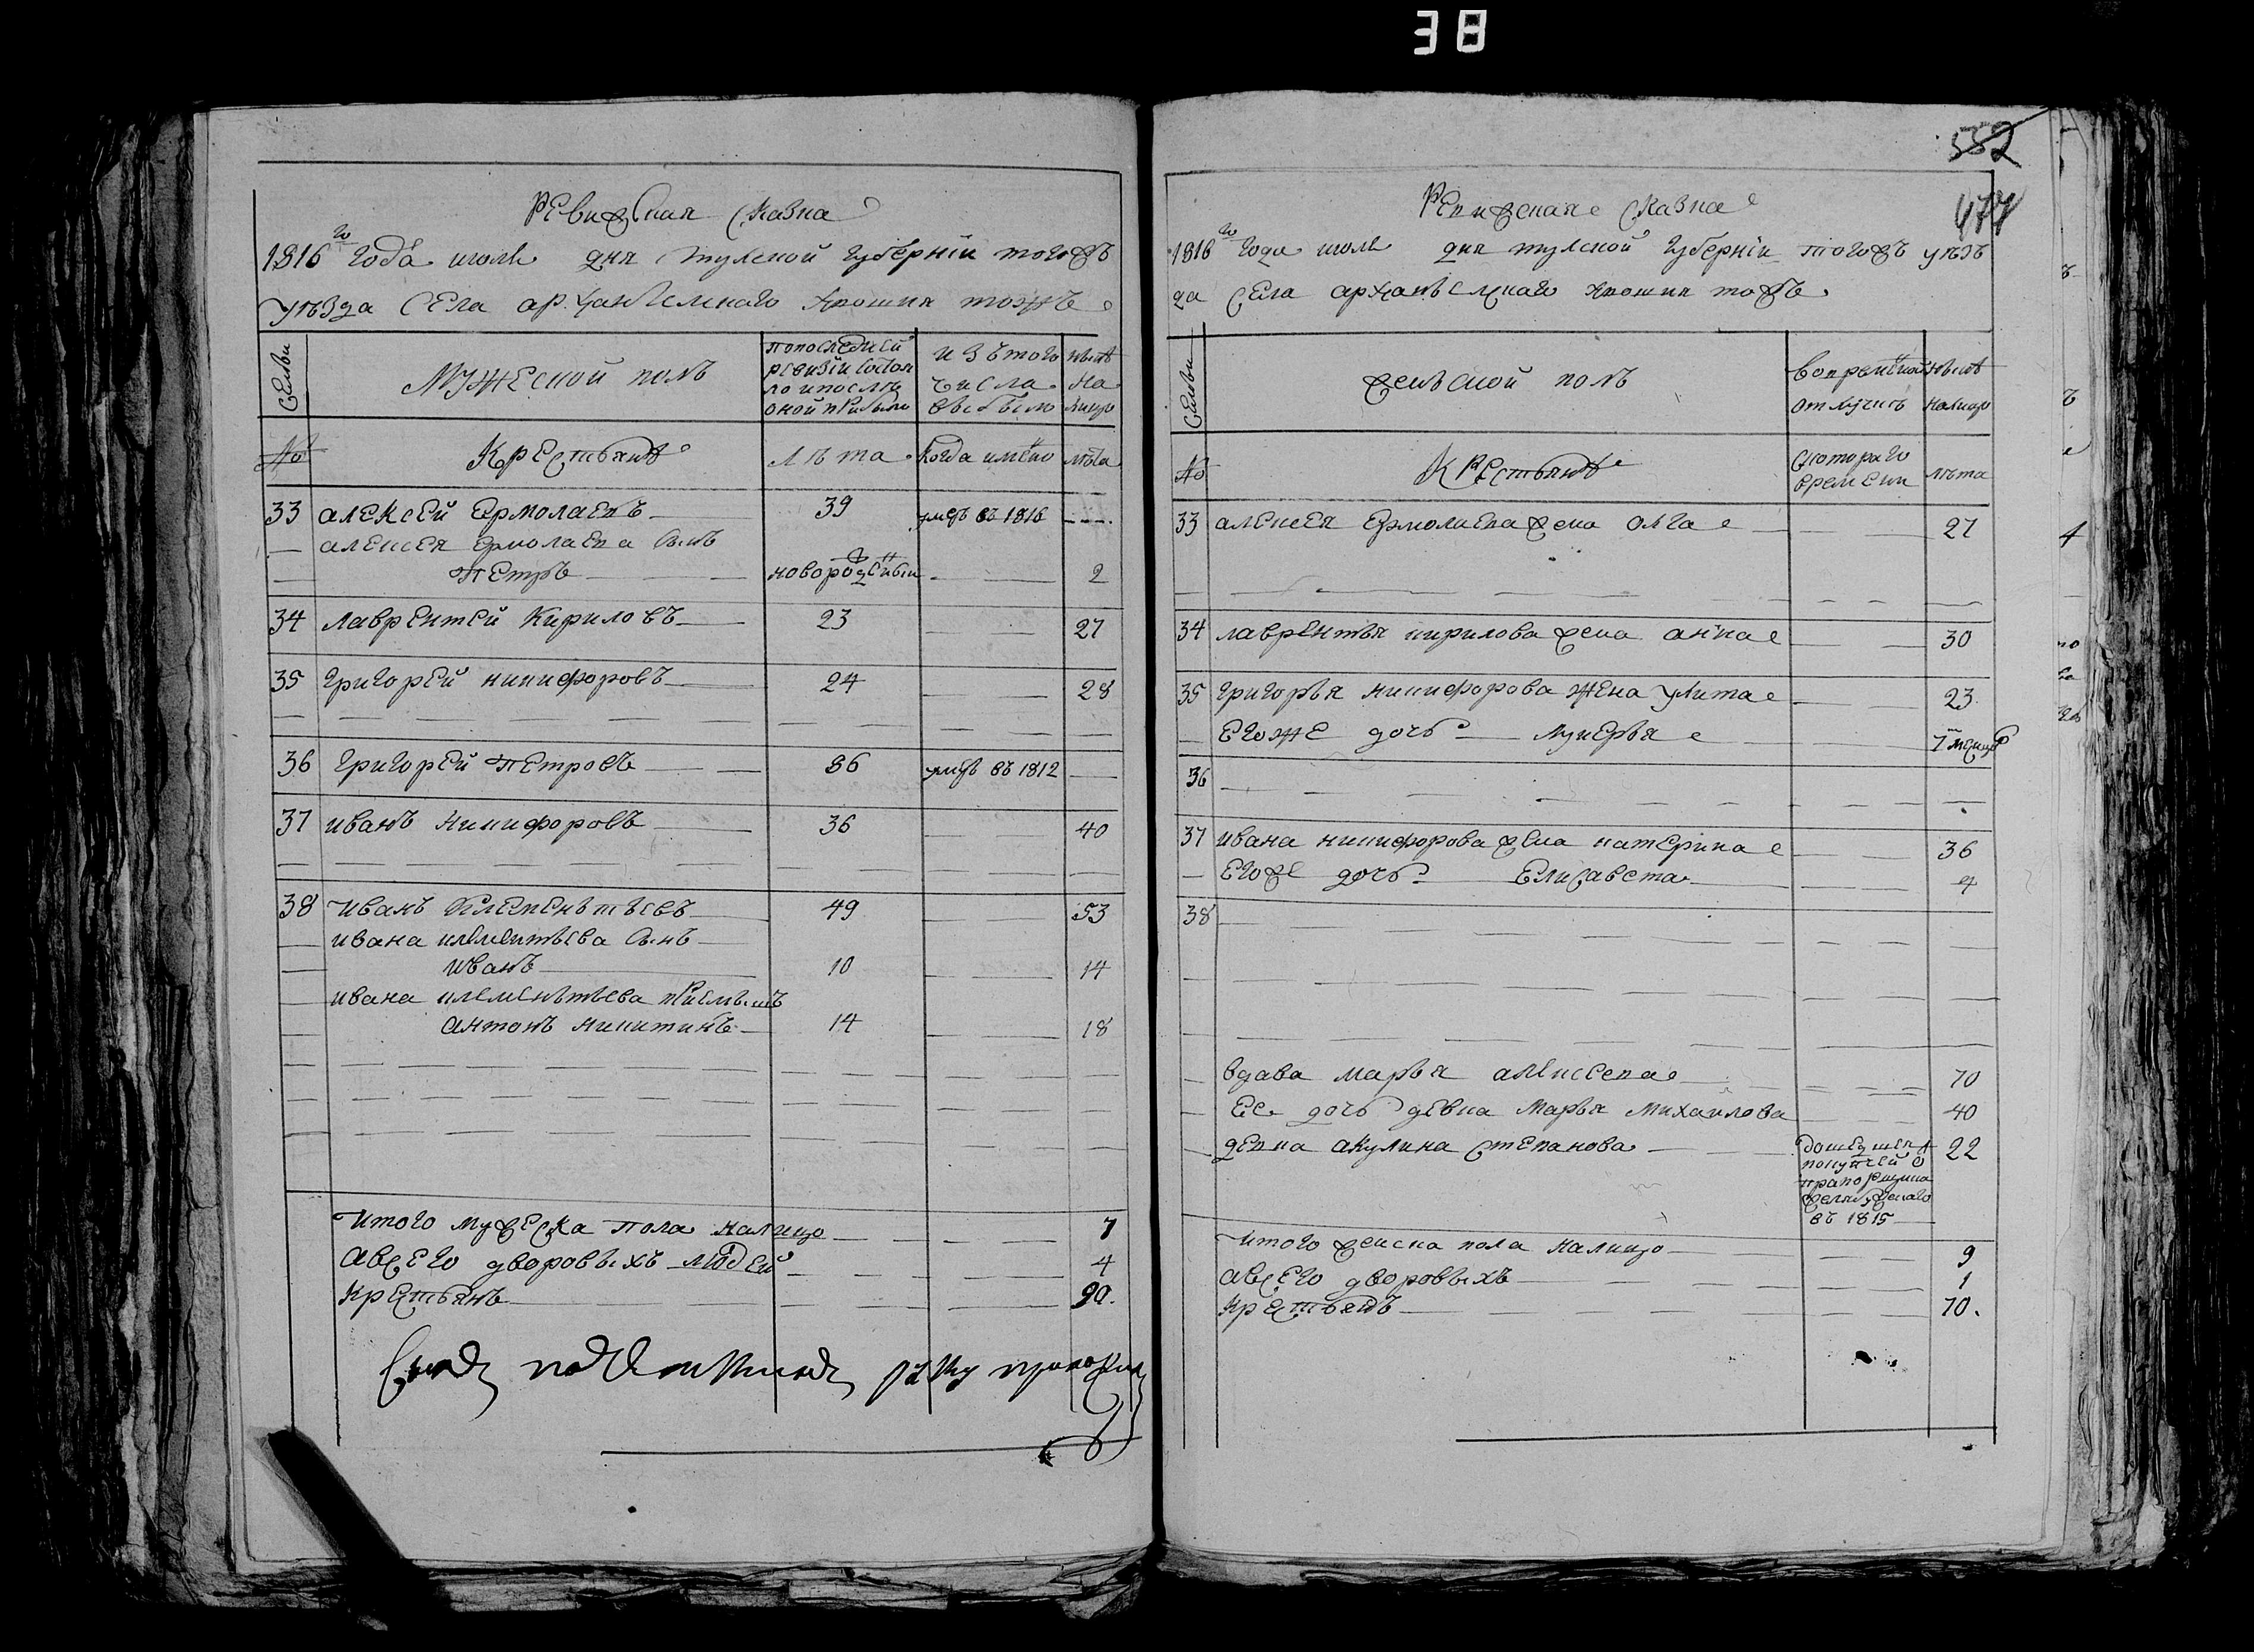 38
Ревижская сказка
1816го года июля дня тулской губернїи тогожъ
уѣзда села архангелского хрошия тожъ
Семьи
Мужеской полъ
попоследней
ревизїи состоя
ло ипосля
оной прибыло
изътого
числа
выбыло
нынѣ
на
лицо
№
Крестьянѣ
лѣта
когда имено
лѣта
33 алексей ермолаевъ 39 умръ въ 1816
алексея ермолаева сынъ
петръ новорожденый 2
34 лаврентей кириловъ 23 27
35 григорей никифоровъ 24 28
36 григорей петровъ 86 умръ въ 1812
37 иванъ никифоровъ 36 40
38 иванъ клеменьтьевъ 49 53
ивана клементьева сынъ
иванъ 10 14
ивана клеменьтьева приемышъ
антонъ никитинъ 14 18
итого мужеска пола налицо 7
авсего дворовыхъ людей 4
крестьянъ 90.
552
477
Ревижская сказка
1816го года июля дня тулской губернїи тогожъ уѣз
да села архангелскаго хрошия тожъ
Семьи
женской полъ
вовременной
отлучкѣ
нынѣ
налицо
№
Крестьянѣ
скотораго
времени
лѣта
33 алексея ермолаева жена олга 27
34 лаврентья кирилова жена анна 30
35 григорья никифорова жена улита 23
егоже дочь лукерья 7 месяцъ
36
37 ивана никифорова жена катерина 36
егоже дочь елисавета 4
38
вдава марья алексеева 70
ее дочь девка марья михайлова 40
девка акулина степанова 22
дошедшея
покупчей о
прапорщика
въ 1815
итого женска пола налицо 9
авсего дворовыхъ 1
крестьянъ 70.